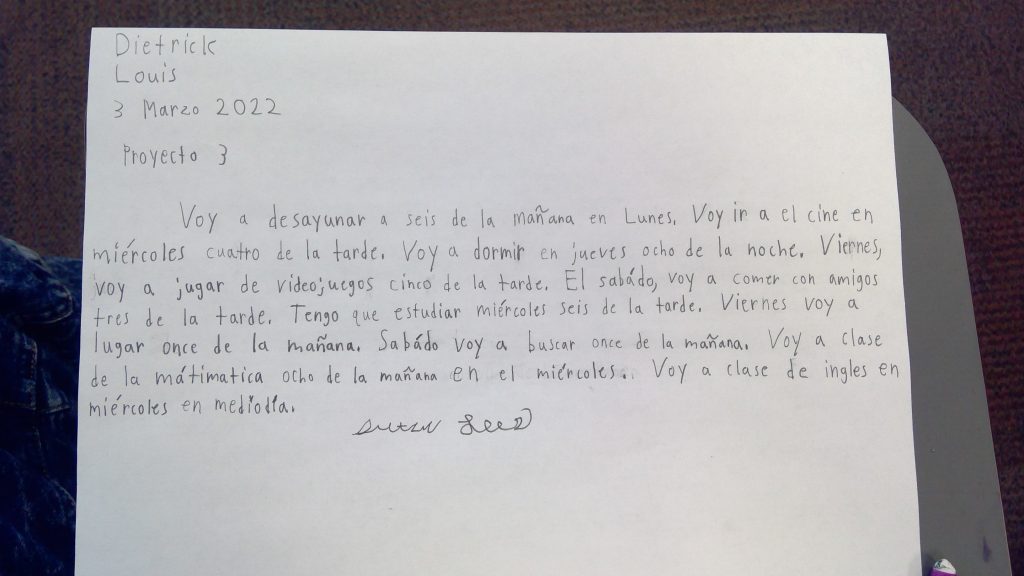 Dietrick
Louis
3 Marzo 2022
Proyecto 3
Voy a desayunar a seis de la mañana en Lunes. Voy ir a el cine en
miércoles cuatro de la tarde. Voy a dormir en jueves ocho de la noche. Viernes,
voy a jugar de videojuegos cinco de la tarde. El sabádo, voy a comer con amigos
tres de la tarde. Tengo que estudiar miércoles seis de la tarde. Viernes voy a
lugar once de la mañana. Sabádo voy a buscar once de la mañana. Voy a clase
de la mátimatica ocho de la mañana en el miércoles.. Voy a clase de ingles en
miércoles en mediodía.